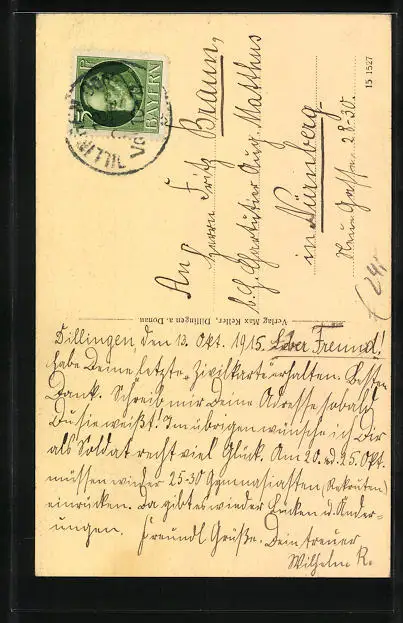 BAYERN
5 Pf
DILLINGEN
15 1527
An
Herrn Fritz Braun,
b. H. Aug. Matthus
in Nürnberg
Neue Gasse 28-30.
Verlag Max Keller, Dillingen a. Donau
Dillingen, den 12. Okt. 1915. Lieber Freund!
habe Deine letzte Zivilkarte erhalten. Besten
Dank. Schreib mir Deine Adresse sobald
Du sie weißt! Im übrigen wünsche ich Dir
als Soldat recht viel Glück. Am 20. u. 25. Okt.
müssen wieder 25-30 Gymnasiasten (Rekruten)
einrücken. Da gibt es wieder Lücken u. Änder-
ungen. Freundl. Grüße. Dein treuer
Wilhelm R.